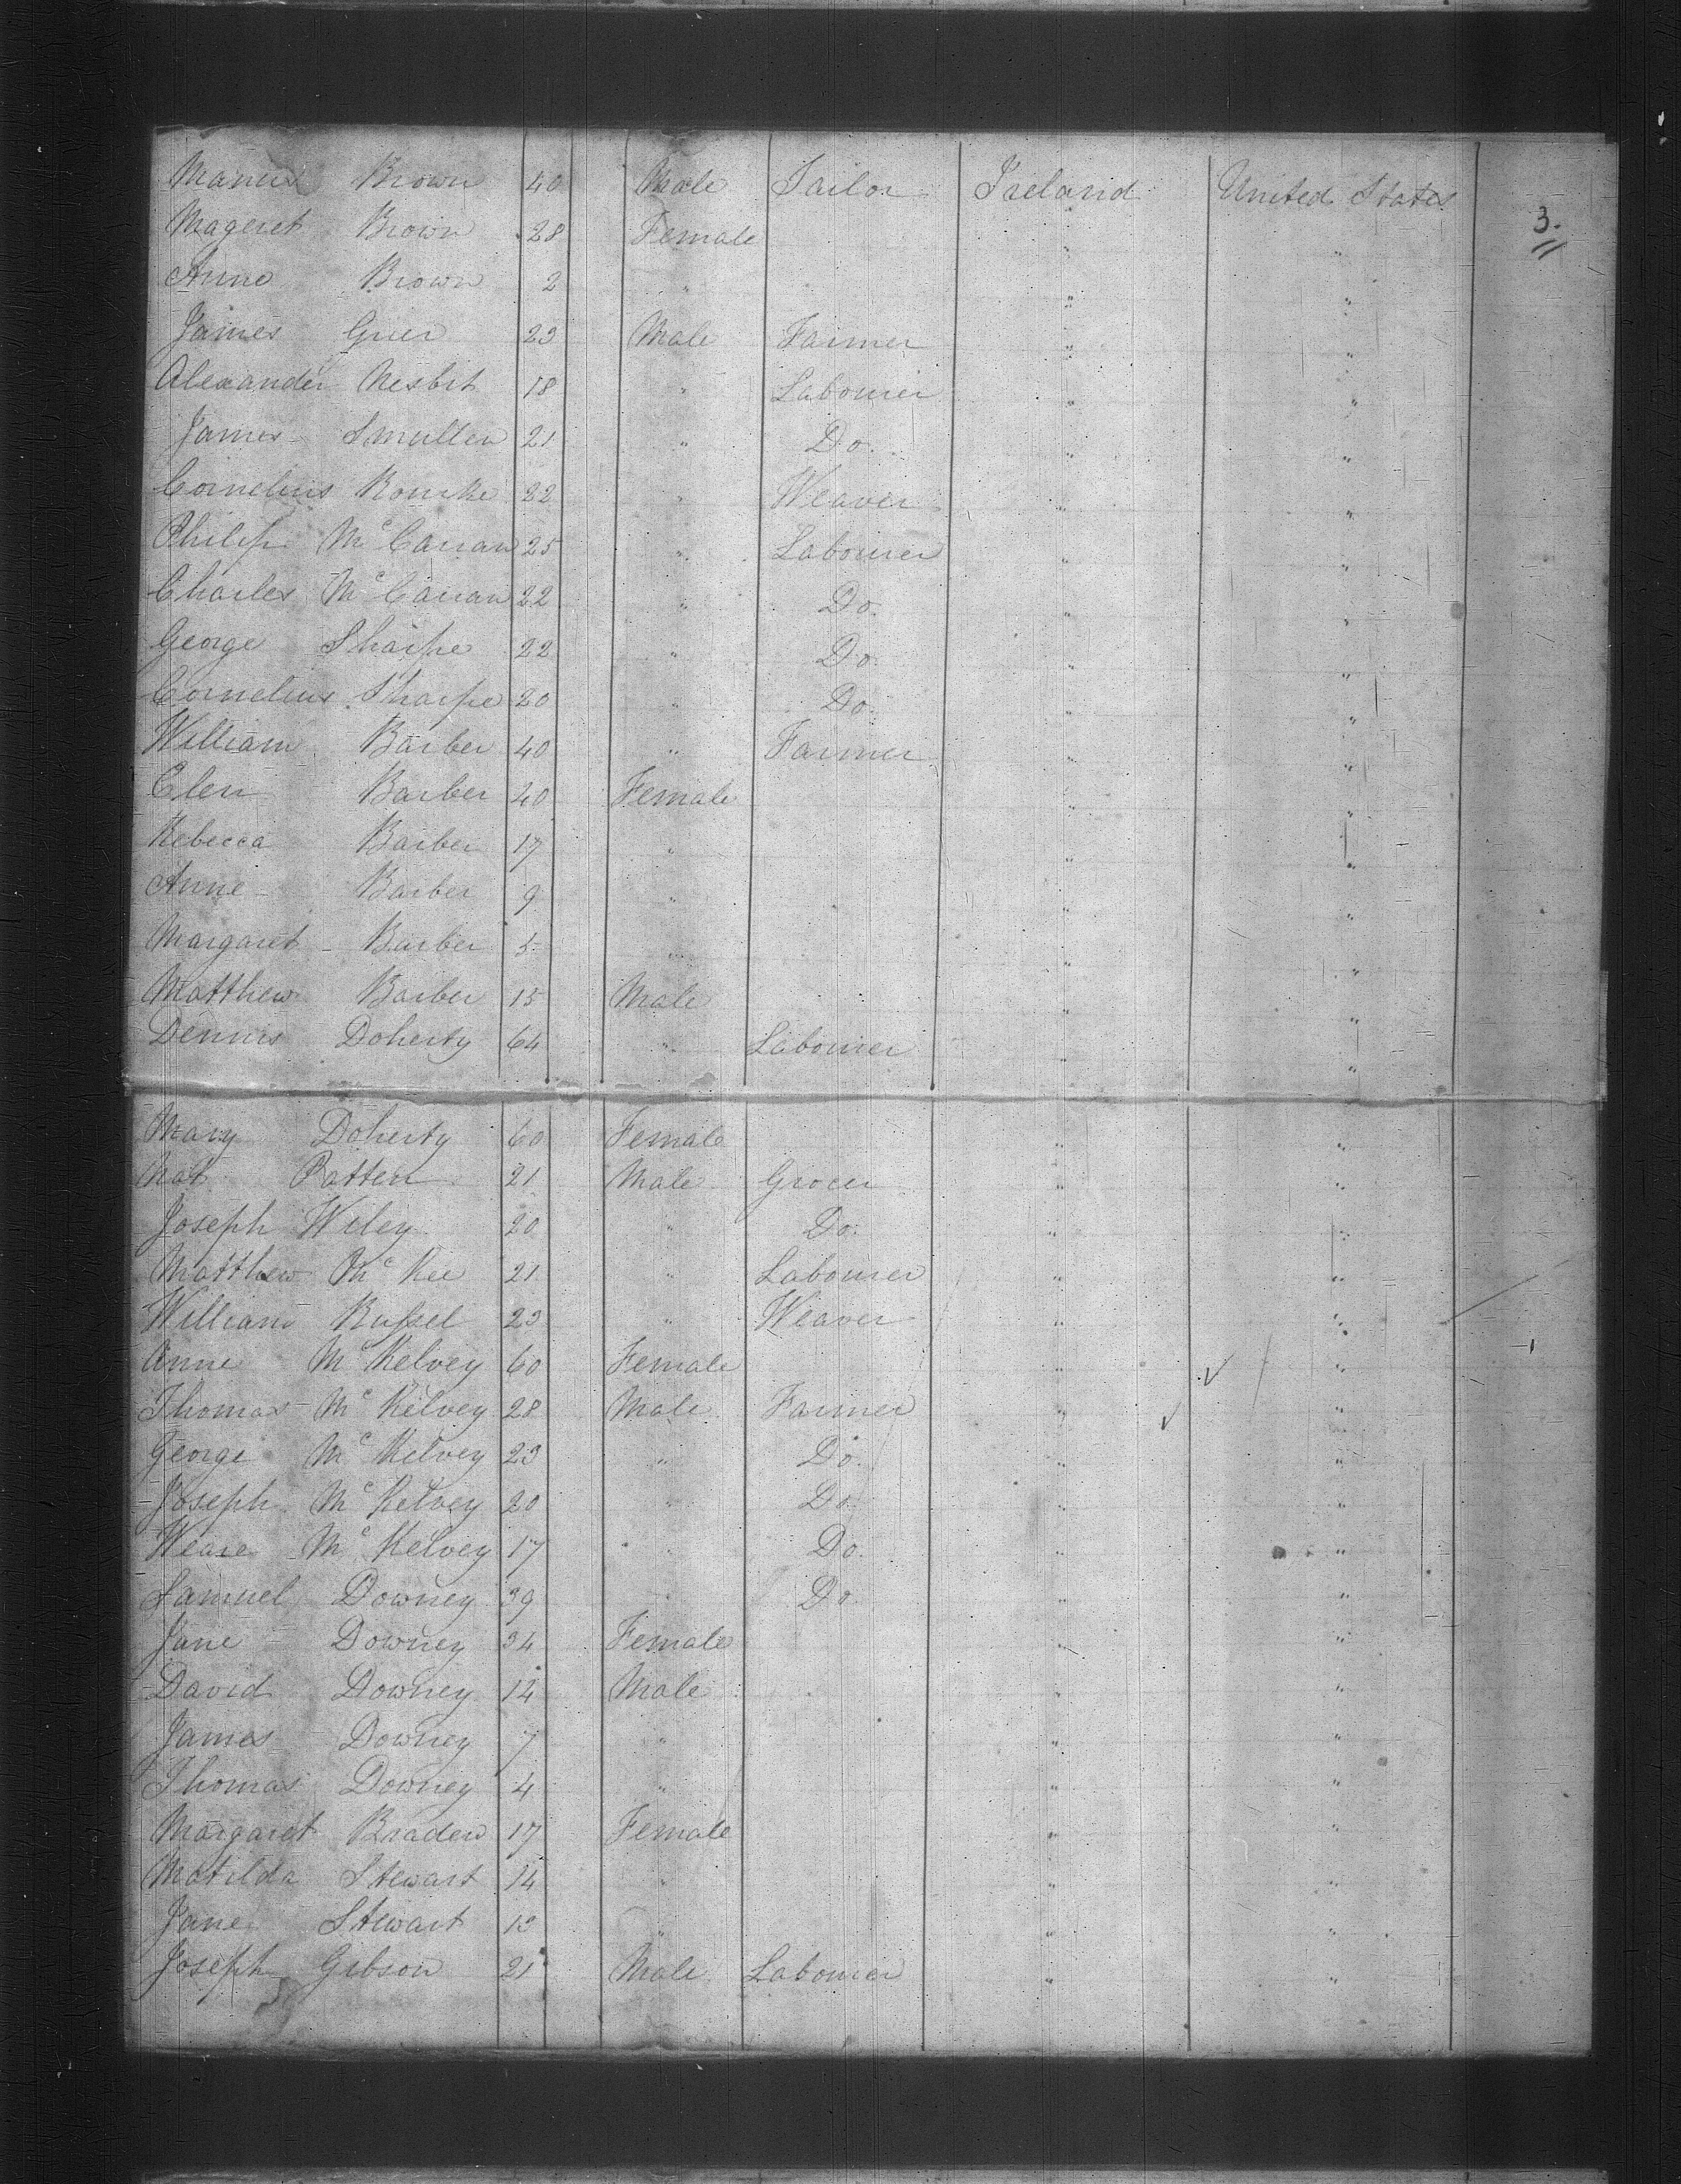 Manus Brown 40 Male Tailor Ireland United States
3.
Mageret Brown 28 Female " "
Anne Brown 2 " " "
James Grier 23 Male Farmer " "
Alexander Nesbit 18 " Labourer " "
James Smullen 21 " Do. " "
Cornelius Rourke 22 " Weaver " "
Philip Mc Carran 25 " Labourer " "
Charles Mc Carran 22 " Do. " "
George Sharpe 22 " Do. " "
Cornelius Sharpe 20 " Do. " "
William Barber 40 " Farmer " "
Elen Barber 40 Female " "
Rebecca Barber 17 " " "
Anne Barber 9 " " "
Margaret Barber 5 " " "
Matthew Barber 15 Male " "
Dennis Doherty 64 " Labourer " "
Mary Doherty 60 Female " "
Nat Patten 21 Male Grocer " "
Joseph Wiley 20 " Do. " "
Matthew Mc Kee 21 " Labourer " "
William Russel 23 " Weaver " "
Anne Mc Kelvey 60 Female " "
Thomas Mc Kelvey 28 Male Farmer " "
George Mc Kelvey 23 " Do. " "
Joseph Mc Kelvey 20 " Do. " "
Weare Mc Kelvey 17 " Do. " "
Samuel Downey 39 " Do. " "
Jane Downey 34 Female " "
David Downey 12 Male " "
James Downey 7 " " "
Thomas Downey 4 " " "
Margaret Braden 17 Female " "
Matilda Stewart 14 " " "
Jane Stewart 13 " " "
Joseph Gibson 21 Male Labourer " "